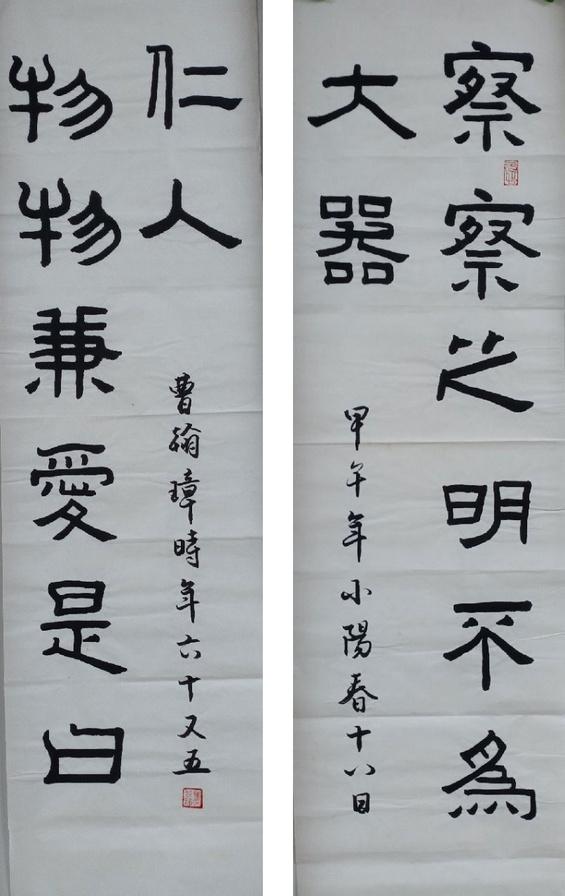 察察之明不爲
大器
甲午年小陽春十八日
物物兼愛是曰
仁人
曹翰璋時年六十又五